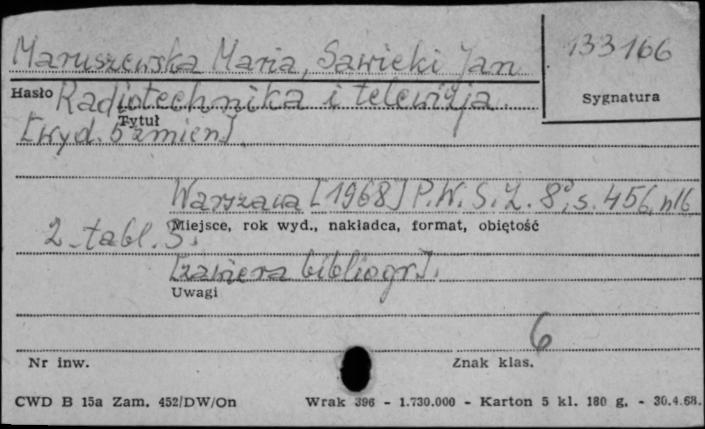 Maruszewska Maria, Sawicki Jan
133166
Hasło Radiotechnika i telewizja.
Sygnatura
Tytuł
[wyd. 5 zmien].
Warszawa [1968] P.W.S.Z. 8°, s. 456, nlb
Miejsce, rok wyd., nakładca, format, objętość
2. tabl. 3.
[zawiera bibliogr].
Uwagi
6
Nr inw.
Znak klas.
CWD B 15a Zam. 452/DW/On Wrak 396 - 1.730.000 - Karton 5 kl. 180 g. - 30.4.68.